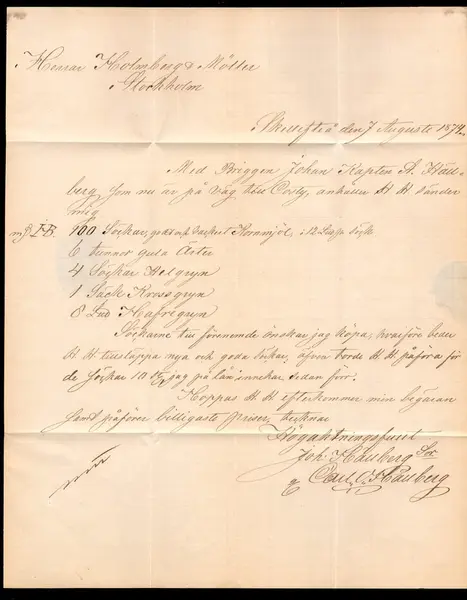 Herrar Holmberg & Möller
Stockholm
Skellefteå den 7 Augusti 1874.
Med Briggen Johan Kapten A. Häll-
berg som nu är på väg till Eder, anhåller H H sänder
mig
100 Säckar, godt och vackert Kornmjöl, i 12 säck
6 tunnor gula Ärter
4 Säckar Helgryn
1 Säck Krossgryn
8 Lud Hafregryn
Säckarne till förenemde önskar jag köpa, hvarföre beder
H H tillsläppa nya och goda Säckar, äfven torde H H påföra för
de Säckar 10 jag på lån innehar sedan förr.
Hoppas H H efterkommer min begäran
samt påförer billigaste priser, tecknar
Högaktningsfullt
Joh. Hällberg Sor
Carl O. Hällberg